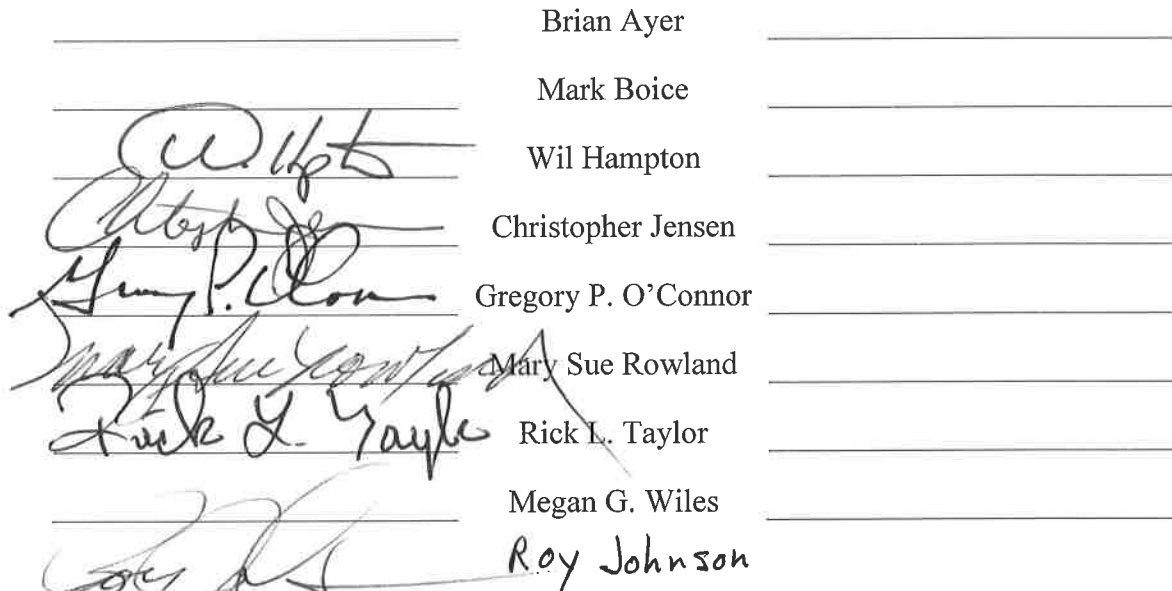 Brian Ayer
Mark Boice
Wil Hampton
Christopher Jensen
Gregory P. O'Connor
Mary Sue Rowland Mary Sue Rowland
Rick L. Taylor Rick L. Taylor
Megan G. Wiles
Roy Johnson